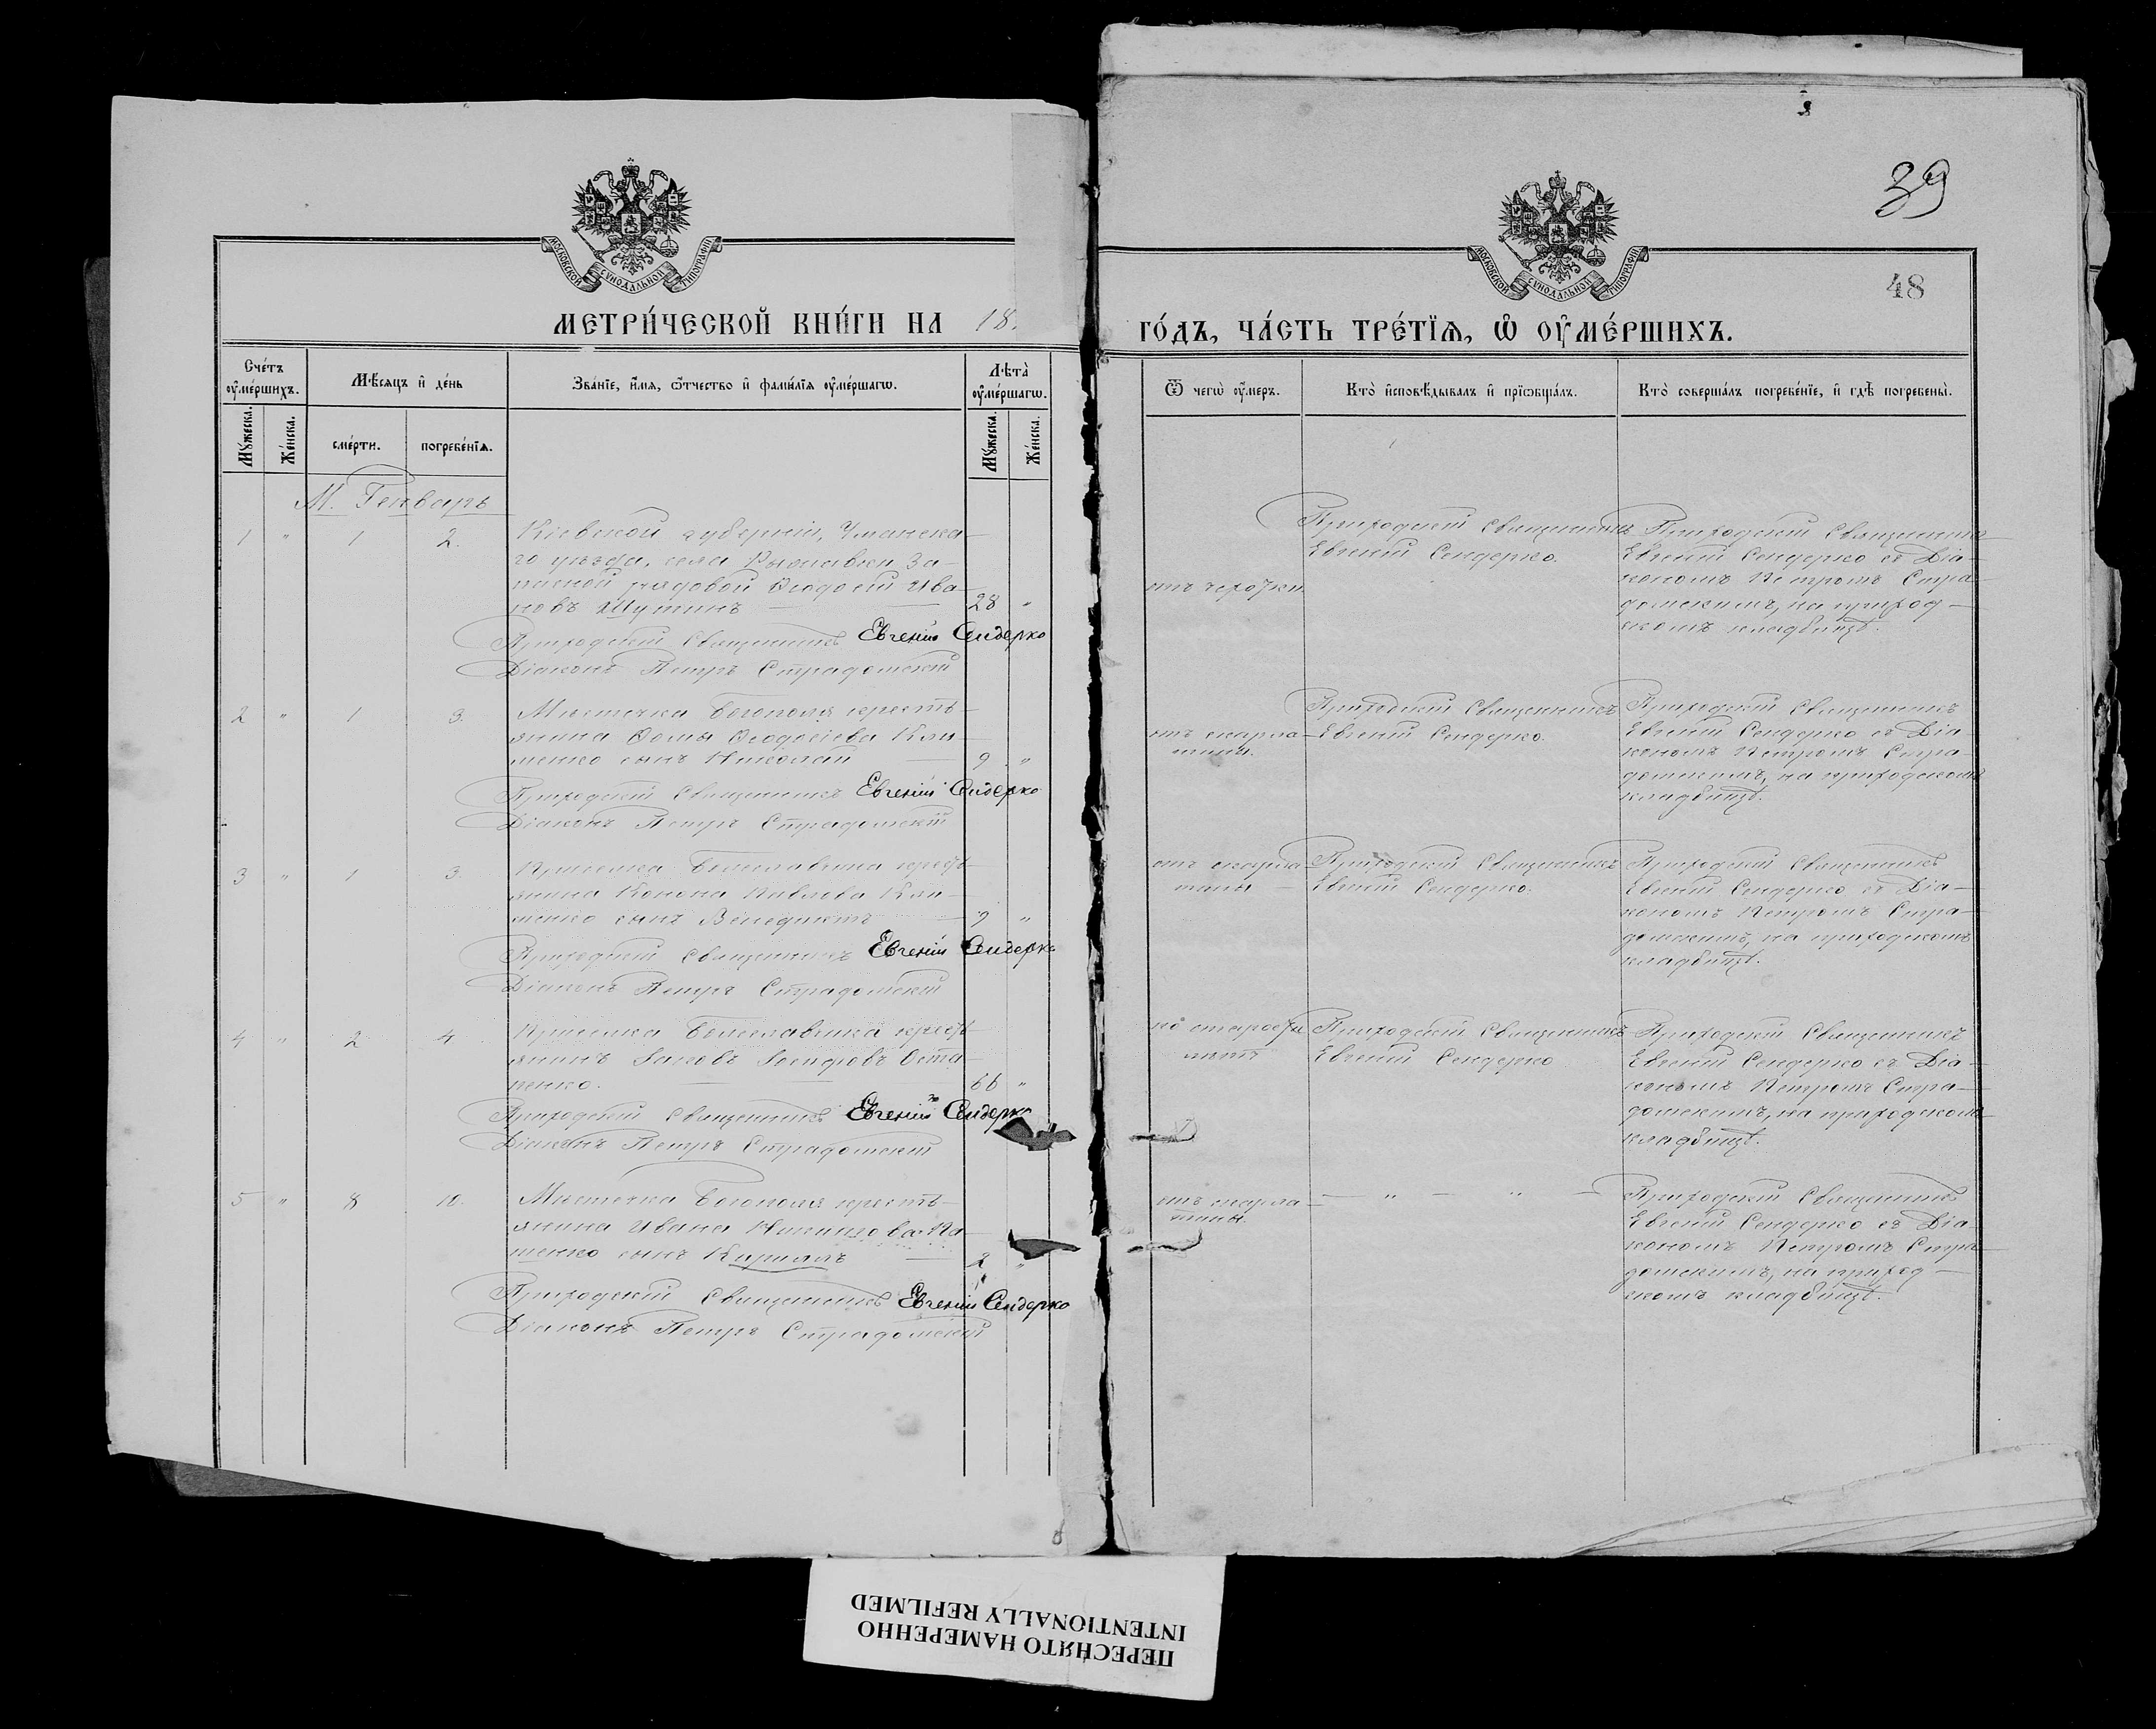 39
48
МОСКОВСКОЙ СѴНОДАЛЬНОЙ ТИПОГРАФІИ
МОСКОВСКОЙ СѴНОДАЛЬНОЙ ТИПОГРАФІИ
МЕТРИ́ЧЕСКОЙ КНИ́ГИ НА 18
ГО́ДЪ, ЧА́СТЬ ТРЕ́ТЇѦ, Ѡ҆ ОУ҆МЕ́РШИХЪ.
Сче́тъ оу҆ме́ршихъ.
Мꙋ́жеска.
Же́нска.
Мѣ́сѧцъ и҆ де́нь
сме́рти.
погребе́нїѧ.
Зва́нїе, и҆́мѧ, ѻ҆́тчество и҆ фами́лїѧ оу҆ме́ршагѡ.
Лѣ́та̀ оу҆ме́ршагѡ.
Мꙋ́жеска.
Же́нска.
Ѿ чегѡ̀ оу҆́меръ.
Кто̀ и҆сповѣ́дывалъ и҆ прїѡбща́лъ.
Кто̀ соверша́лъ погребе́нїе, и҆ гдѣ̀ погребены̀.
М. Генварь
1 " 1 2.
Кіевской губерніи, Уманска-
го уѣзда, села Рыжавки За-
пасной рядовой Ѳеодосій Ива-
новъ Шутинъ — 28 "
Приходскій Священникъ Евгеній Сендерко
Діаконъ Петръ Страдомскій
отъ чахотки
Приходскій Священникъ
Евгеній Сендерко.
Приходскій Священникъ
Евгеній Сендерко съ Діа-
кономъ Петромъ Стра-
домскимъ, на приход-
скомъ кладбищѣ.
2 " 1 3.
Мѣстечка Богополя кресть-
янина Ѳомы Ѳеодосіева Кли-
менко сынъ Николай — 9 "
Приходскій Священникъ Евгеній Сендерко
Діаконъ Петръ Страдомскій
отъ скарла-
тины.
Приходскій Священникъ
Евгеній Сендерко.
Приходскій Священникъ
Евгеній Сендерко съ Діа-
кономъ Петромъ Стра-
домскимъ, на приходскомъ
кладбищѣ.
3 " 1 3.
Приселка Болеславчика кресть-
янина Конона Павлова Кли-
менко сынъ Венедиктъ — 9 "
Приходскій Священникъ Евгеній Сендерко
Діаконъ Петръ Страдомскій
отъ скарла-
тины
Приходскій Священникъ
Евгеній Сендерко.
Приходскій Священникъ
Евгеній Сендерко съ Діа-
кономъ Петромъ Стра-
домскимъ, на приходскомъ
кладбищѣ.
4 " 2 4
Приселка Болеславчика кресть-
янинъ Іаковъ Іосифовъ Оста-
пенко. — 66 "
Приходскій Священникъ Евгеній Сендерко
Діаконъ Петръ Страдомскій
по старости
лѣтъ
Приходскій Священникъ
Евгеній Сендерко
Приходскій Священникъ
Евгеній Сендерко съ Діа-
кономъ Петромъ Стра-
домскимъ, на приходскомъ
кладбищѣ.
5 " 8 10.
Мѣстечка Богополя кресть-
янина Ивана
сынъ Кириллъ — 2 "
Приходскій Священникъ Евгеній Сендерко
Діаконъ Петръ Страдомскій
отъ скарла-
тины.
— " — " —
Приходскій Священникъ
Евгеній Сендерко съ Діа-
кономъ Петромъ Стра-
домскимъ, на приход-
скомъ кладбищѣ.
ПЕРЕСНЯТО НАМЕРЕННО
INTENTIONALLY REFILMED